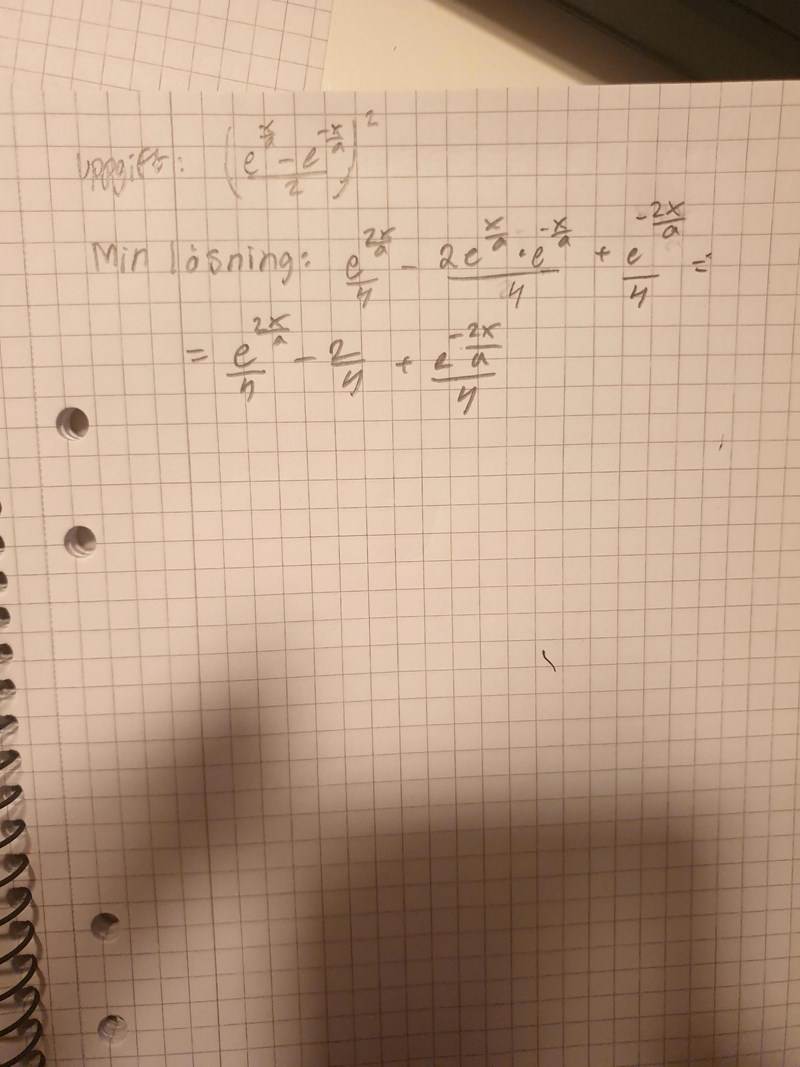 Uppgift: ((e^(x/a) - e^(-x/a))/2)^2
Min lösning: e^(2x/a)/4 - (2e^(x/a) · e^(-x/a))/4 + e^(-2x/a)/4 =
= e^(2x/a)/4 - 2/4 + e^(-2x/a)/4